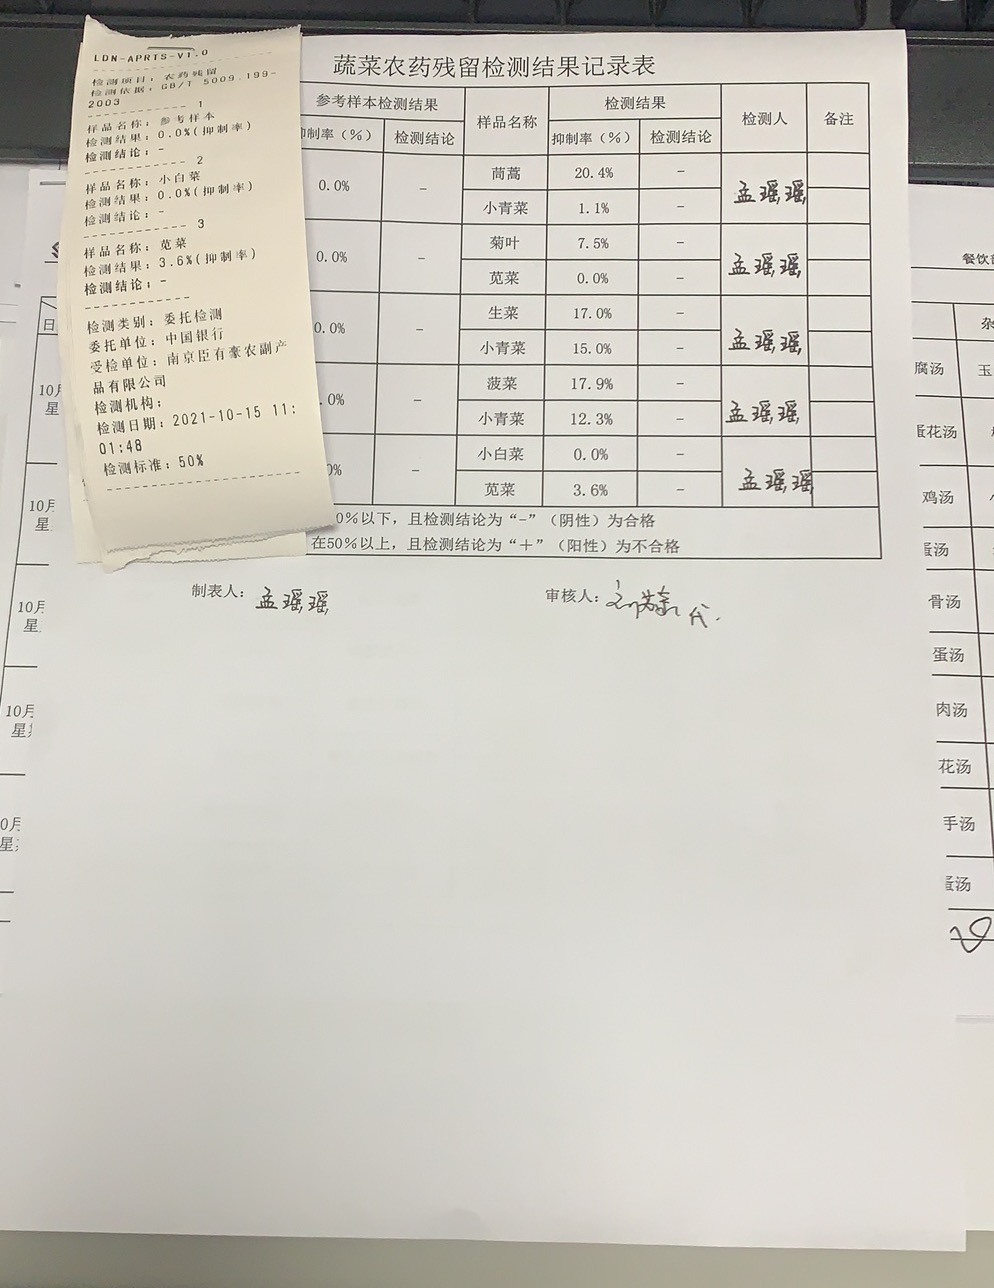 LDN-APRTS-V1.0
检测项目: 农药残留
检测依据: GB/T 5009.199-
2003
1
样品名称: 参考样本
检测结果: 0.0%(抑制率)
检测结论: -
2
样品名称: 小白菜
检测结果: 0.0%(抑制率)
检测结论: -
3
样品名称: 苋菜
检测结果: 3.6%(抑制率)
检测结论: -
检测类别: 委托检测
委托单位: 中国银行
受检单位: 南京臣有豪农副产
品有限公司
检测机构:
检测日期: 2021-10-15 11:
01:48
检测标准: 50%
蔬菜农药残留检测结果记录表
参考样本检测结果 样品名称 检测结果 检测人 备注
抑制率（%） 检测结论 抑制率（%） 检测结论
0.0% － 茼蒿 20.4% － 孟瑶瑶
小青菜 1.1% －
0.0% － 菊叶 7.5% － 孟瑶瑶
苋菜 0.0% －
0.0% － 生菜 17.0% － 孟瑶瑶
小青菜 15.0% －
.0% － 菠菜 17.9% － 孟瑶瑶
小青菜 12.3% －
0% － 小白菜 0.0% － 孟瑶瑶
苋菜 3.6% －
0%以下，且检测结论为“-”（阴性）为合格
在50%以上，且检测结论为“＋”（阳性）为不合格
制表人: 孟瑶瑶 审核人: 代.
日
10月
星
10月
星
10月
星
10月
星
0月
星
餐饮
杂
腐汤 玉
蛋花汤
鸡汤
蛋汤
骨汤
蛋汤
肉汤
花汤
手汤
蛋汤